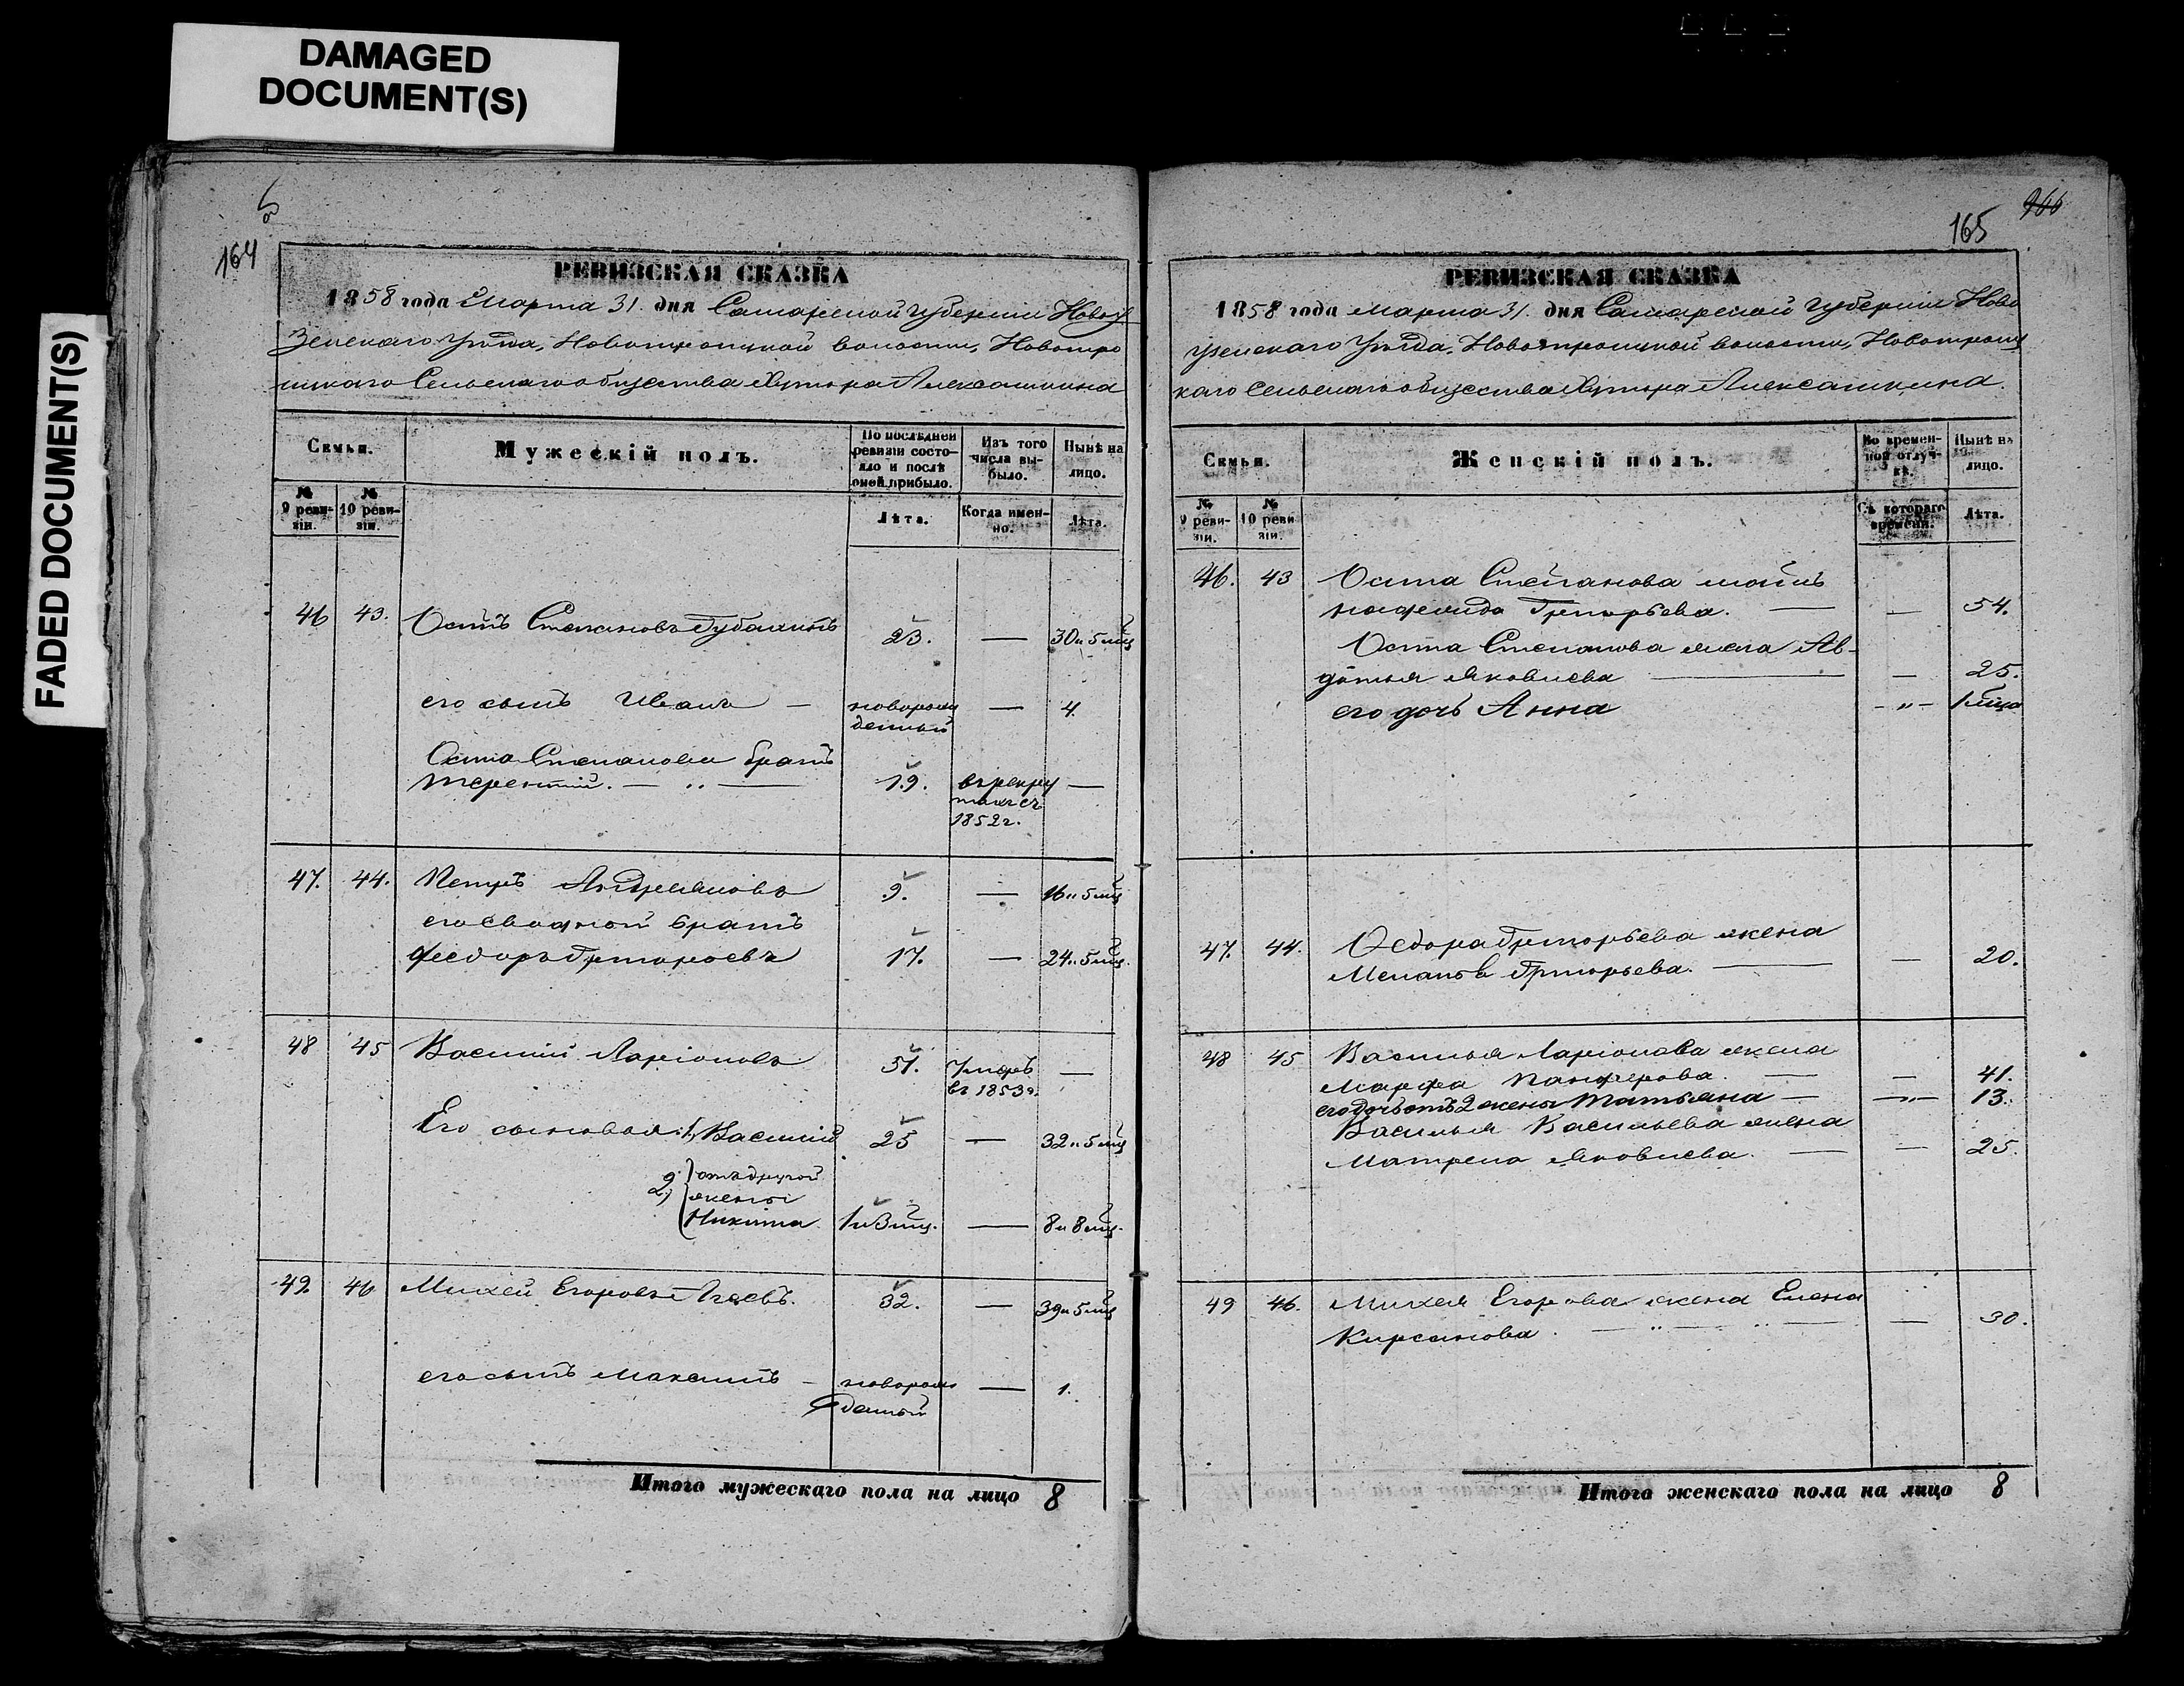 DAMAGED
DOCUMENT(S)
FADED DOCUMENT(S)
164
РЕВИЗСКАЯ СКАЗКА
1858 года Марта 31. дня Самарской Губерніи Новоу
зенскаго Уѣзда, Новотроицкой волости, Новотро
ицкаго Сельскаго общества Хутора Алексашкина
Семьи.
Мужескій полъ.
По послѣдней ревизіи состояло и послѣ оной прибыло.
Изъ того числа выбыло.
Нынѣ на лицо.
№ 9 ревизіи.
№ 10 ревизіи.
Лѣта.
Когда именно.
Лѣта.
46 43. Осипъ Степановъ 23. — 30 и 5 мц
его сынъ Иванъ — новорож — 4.
денный
Осипа Степанова братъ
Терентій. — 19. въ рекру —
тахъ съ
1852 г.
47. 44. Петръ Андреяновъ 9. — 16 и 5 мц
его сводной братъ
Федоръ Григорьевъ 17. — 24 и 5 мц.
48 45 Василий Ларіоновъ 51. Умеръ —
въ 1853 г.
Его сыновья: 1, Василий 25 — 32 и 5 мц
2, отъ другой
жены
Никита 1 и 3 мц. — 8 и 8 мц.
49. 46 Михей Егоровъ 32. — 39 и 5 мц
его сынъ Максимъ — новорож — 1.
денный
Итого мужескаго пола на лицо 8
966
165
РЕВИЗСКАЯ СКАЗКА
1858 года марта 31. дня Самарской Губерніи Ново
узенскаго Уѣзда, Новотроицкой волости, Новотроиц
каго Сельскаго общества Хутора Алексашкина.
Семьи.
Женскій полъ.
Во временной отлучкѣ.
Нынѣ на лицо.
№ 9 ревизіи.
№ 10 ревизіи.
Съ котораго времени.
Лѣта.
46. 43 Осипа Степанова мать
Григорьева. — — 54.
Осипа Степанова жена Ав-
дотья Яковлева — — 25.
его дочь Анна — " —
47. 44. Федора Григорьева жена
Григорьева. — — 20.
48 45 Василья Ларіонова жена
Марфа Панферова. — — 41.
его дочь отъ 2 жены Татьяна — — " — 13.
Василья Васильева жена
Матрена Яковлева. — — 25.
49 46. Михея Егорова жена Елена
Кирсанова. — " — " — — 30.
Итого женскаго пола на лицо 8